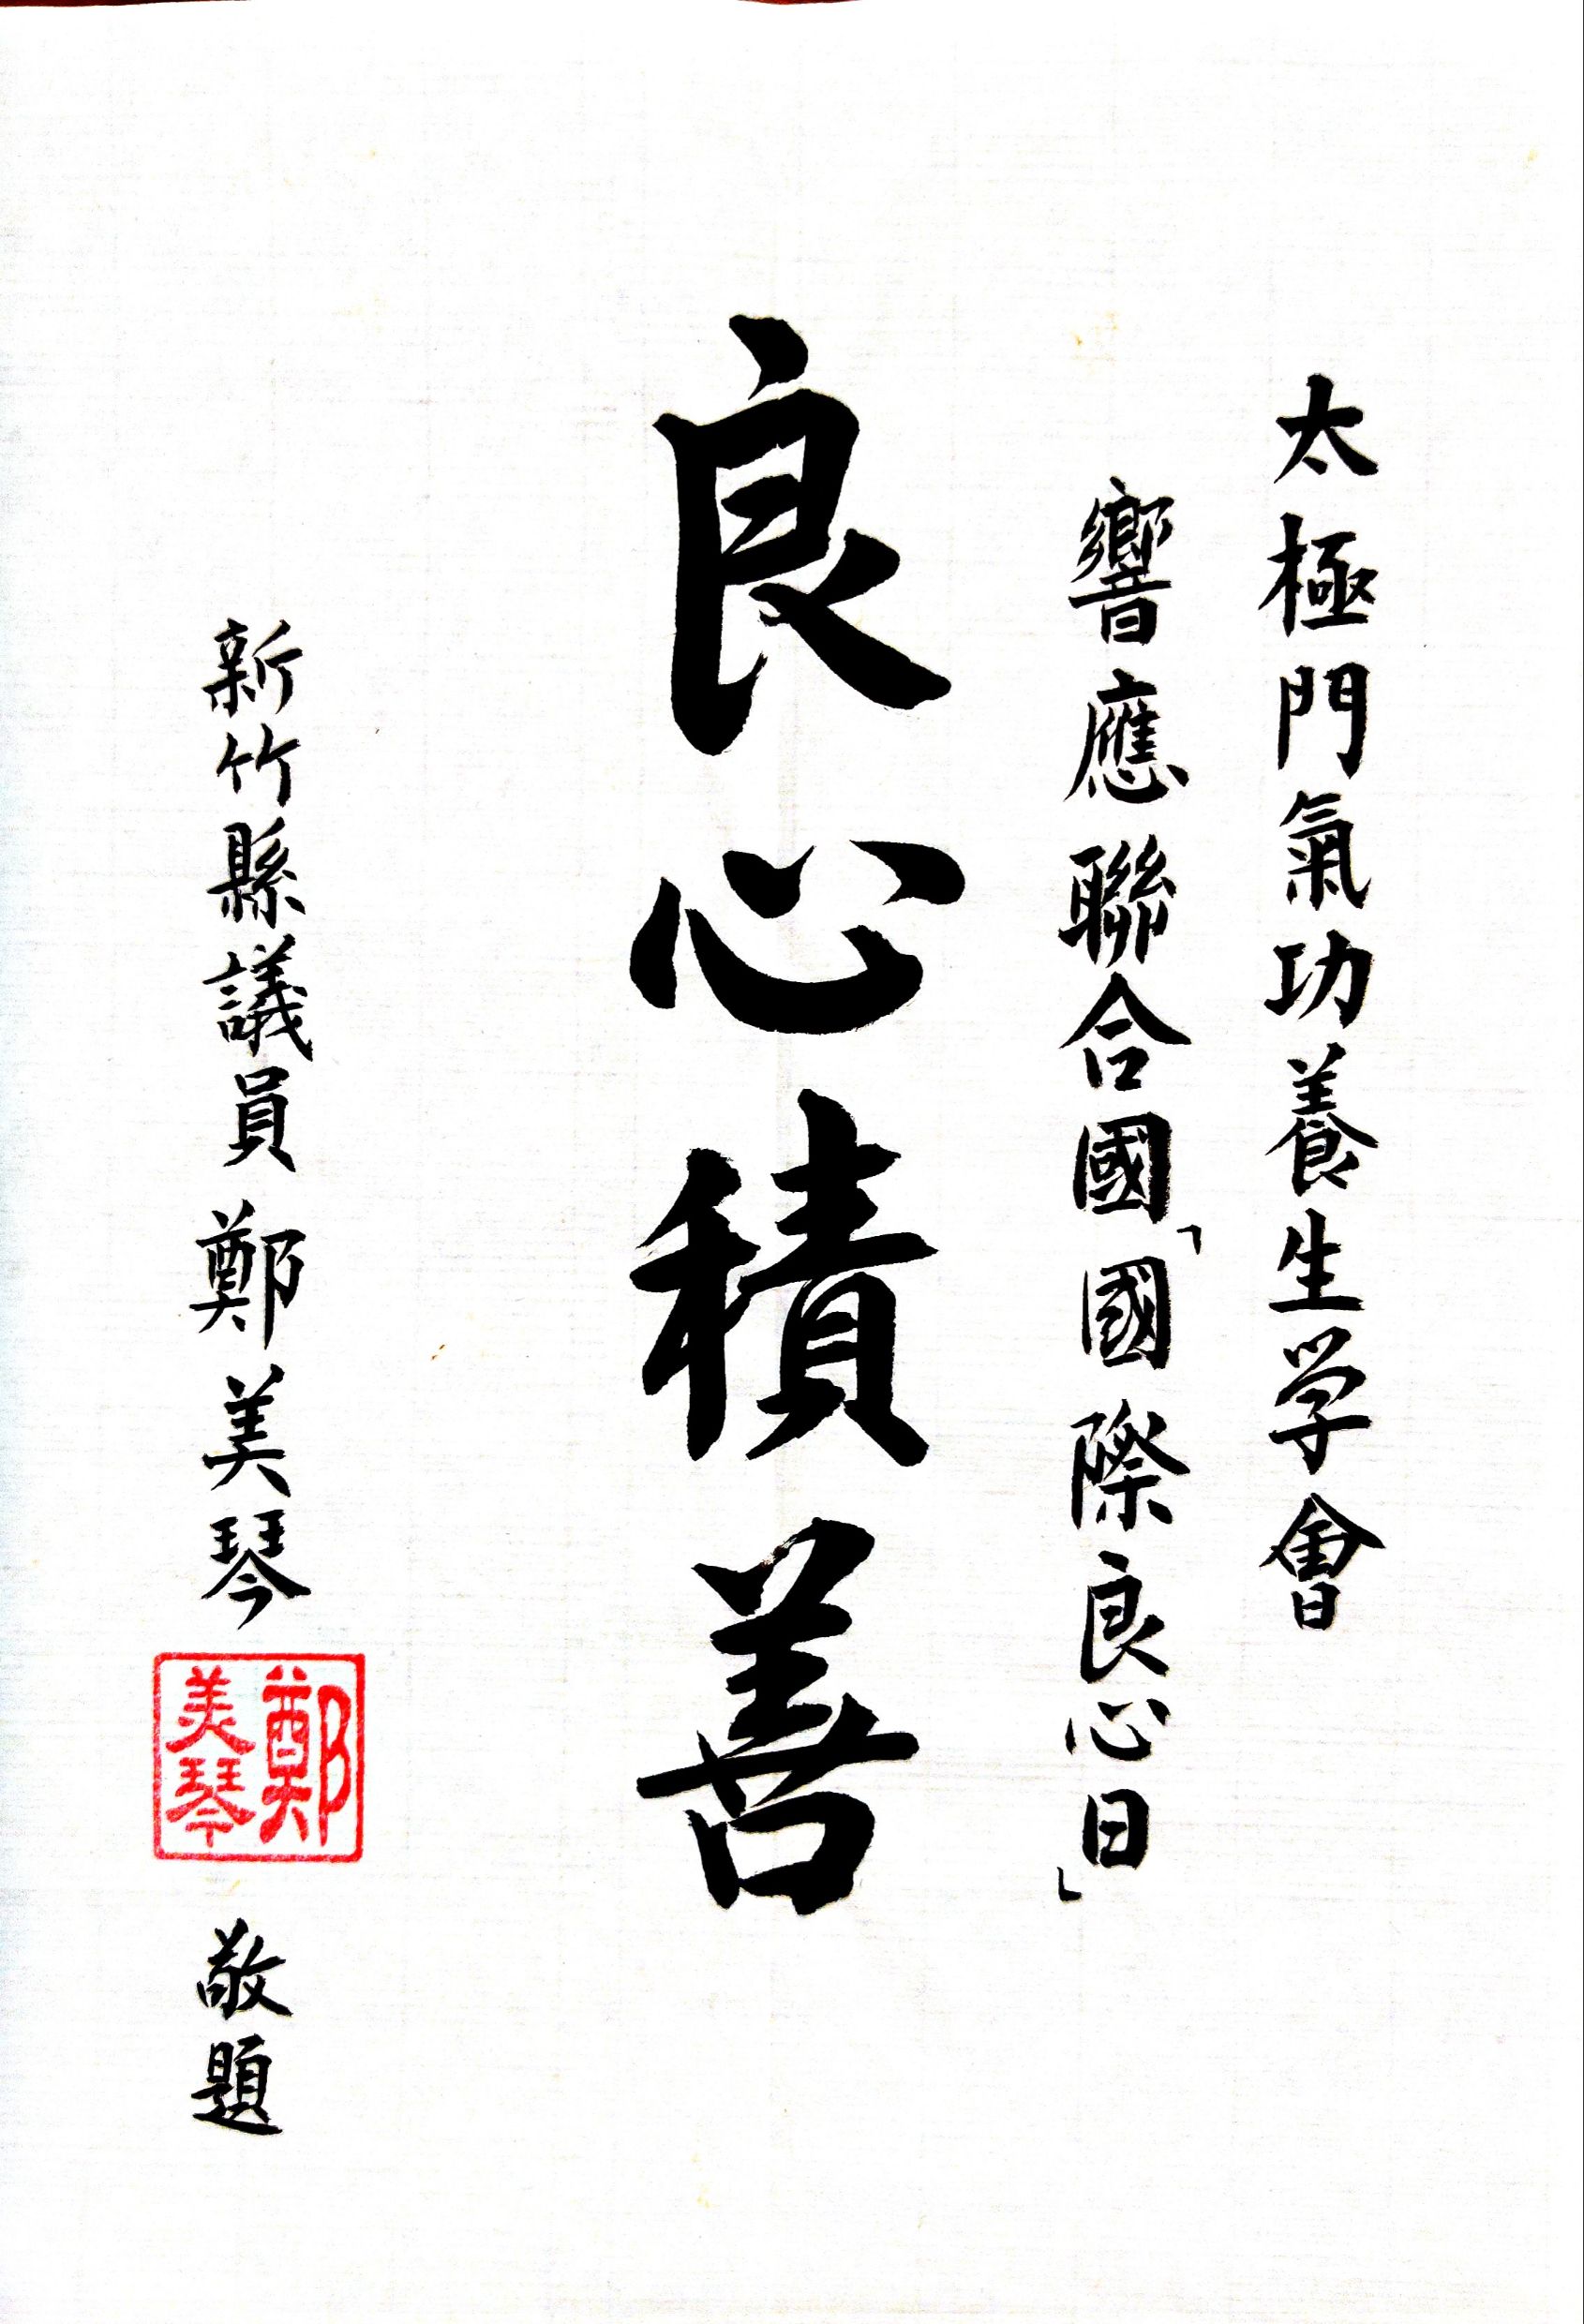 太極門氣功養生学會
響應聯合國「國際良心日」
良心積善
新竹縣議員 鄭美琴
鄭美琴
敬題